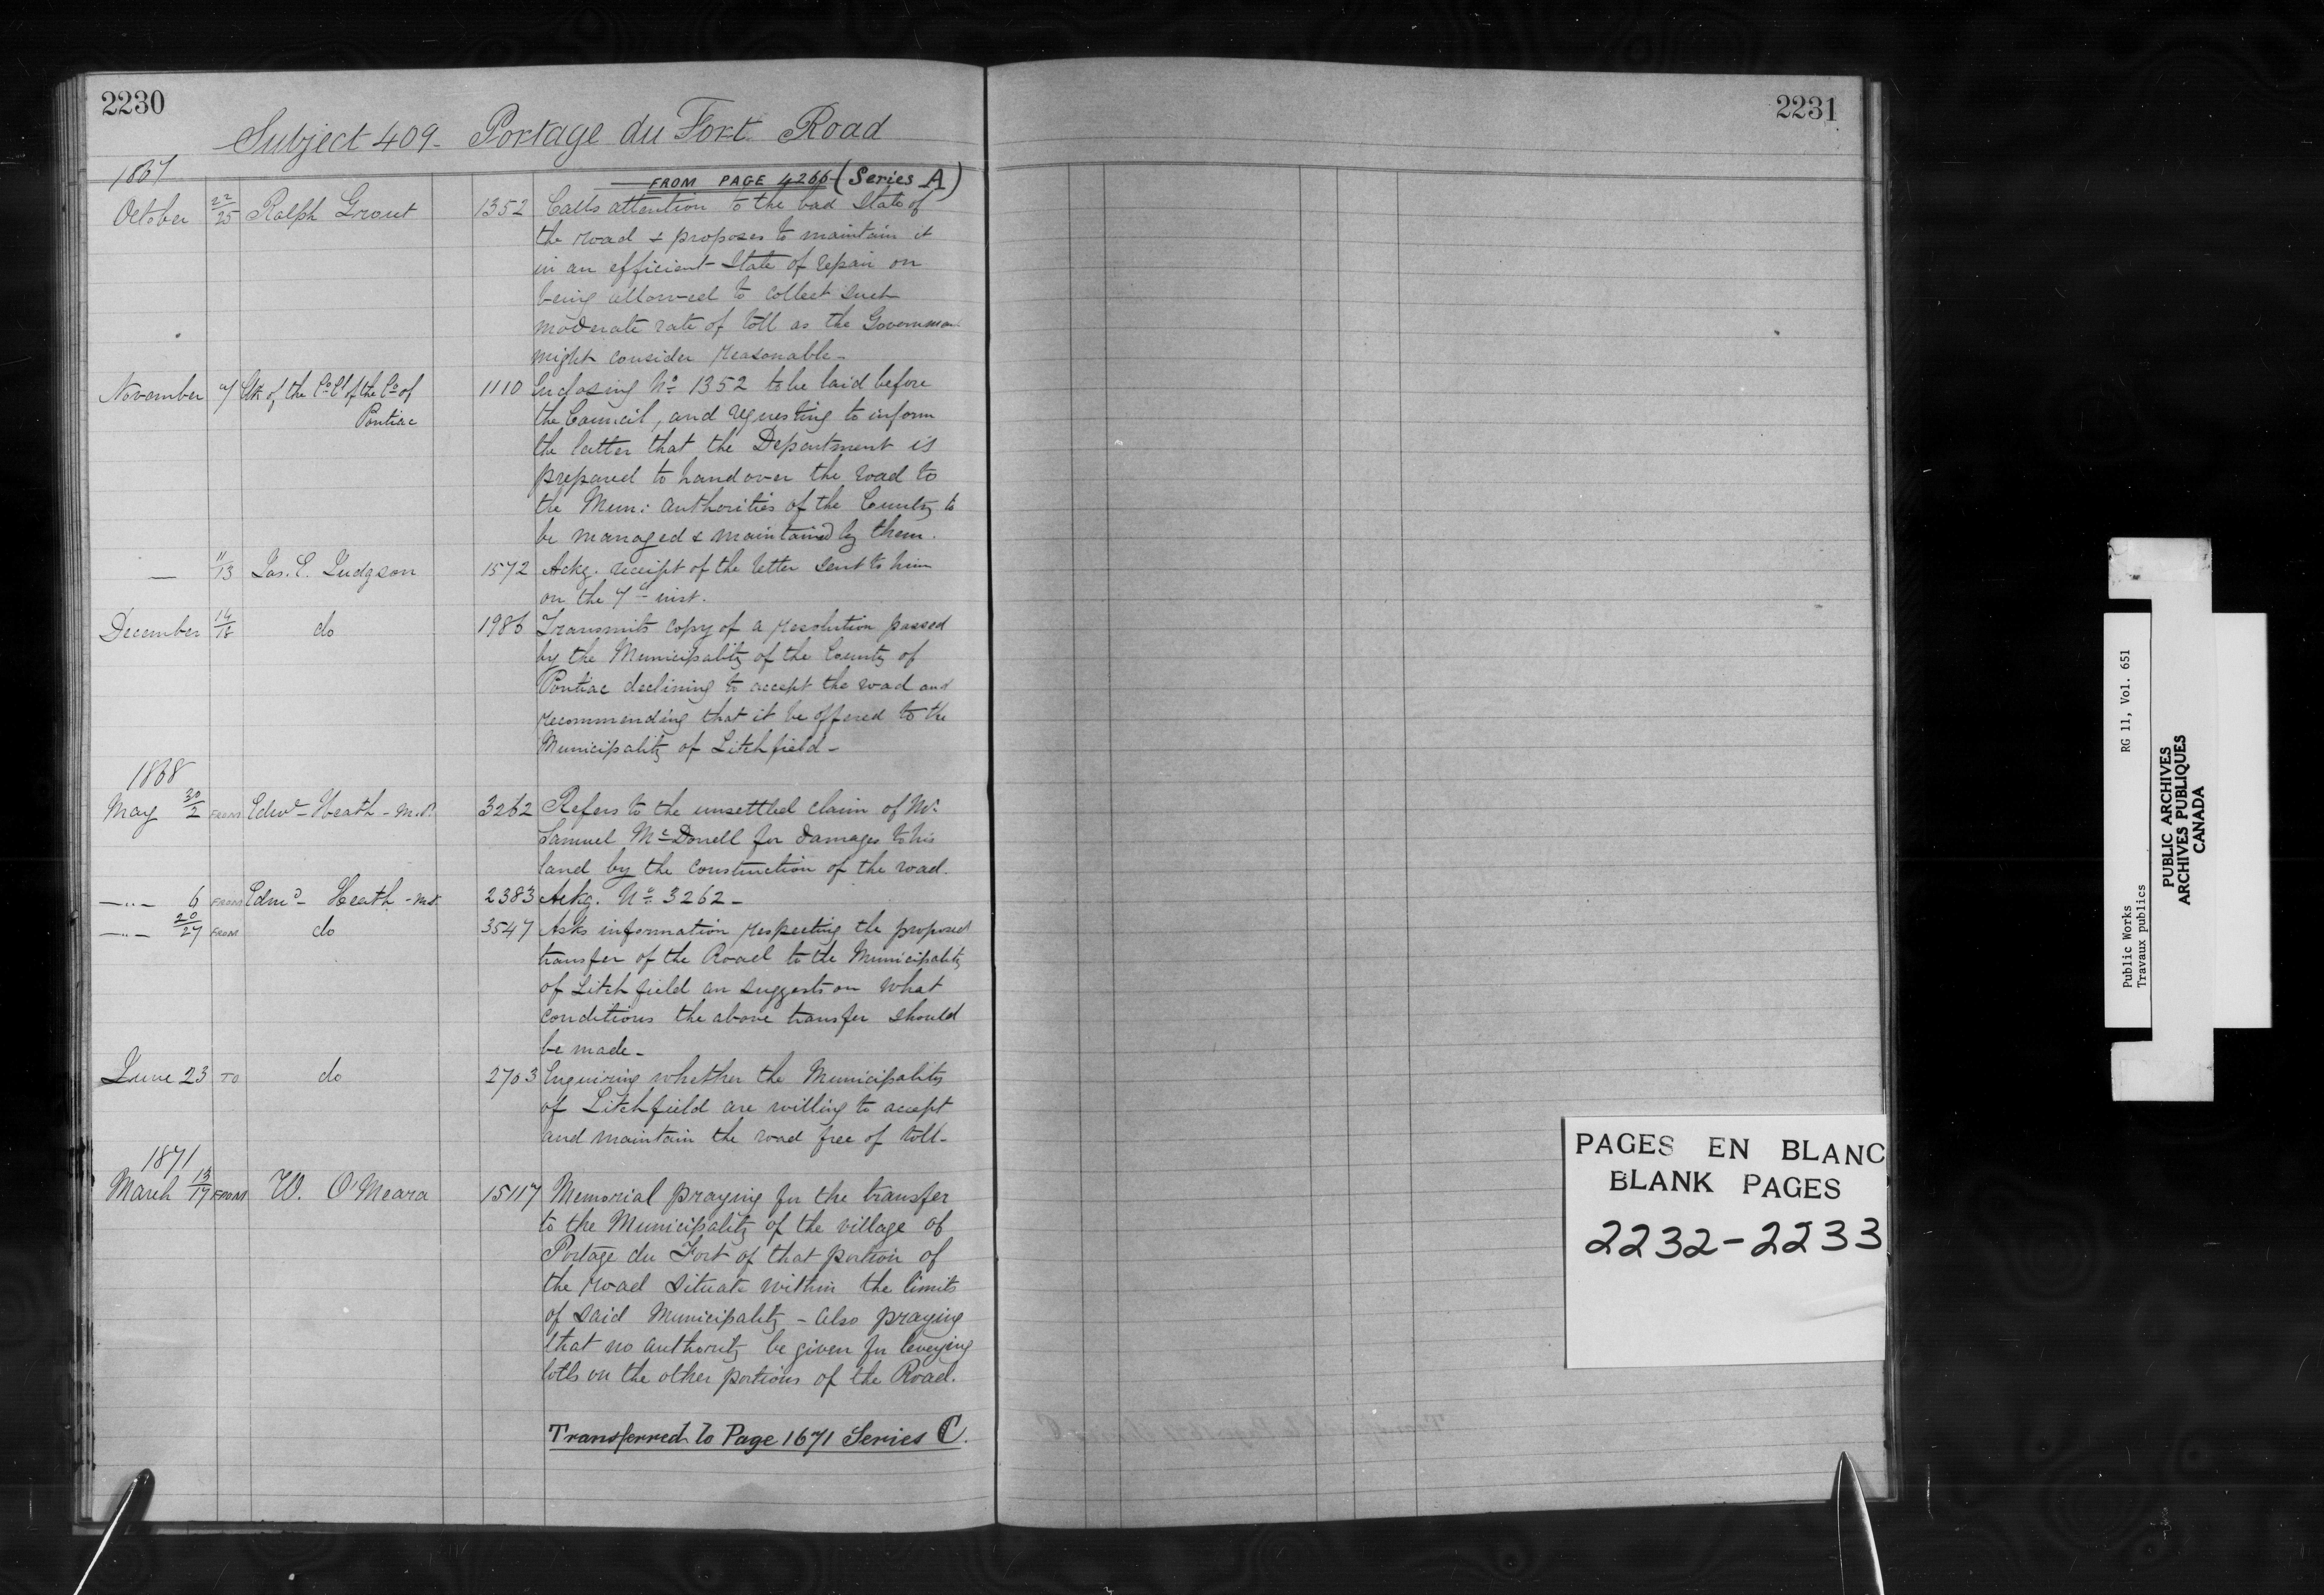 2230
Subject 409 - Portage du Fort Road
1867
FROM PAGE 4266 (Series A)
October 22/25 Ralph Grout 1352 Calls attention to the bad State of
the road & proposes to maintain it
in an efficient State of repair on
being allowed to collect such
moderate rate of toll as the Governmen
might consider reasonable -
November 7 Clk of the Co Cl of the Co of 1110 Inclosing No 1352 to be laid before
Pontiac the Council, and requesting to inform
the latter that the Department is
prepared to hand over the road to
the Mun: authorities of the County to
be managed & maintained by them.
— 11/13 Jas. E. Judgson 1572 Ackg. receipt of the letter sent to him
on the 7th inst.
December 14/18 do 1986 Transmits copy of a resolution passed
by the Municipality of the County of
Pontiac declining to accept the road and
recommending that it be offered to the
Municipality of Litchfield -
1868
May 30/2 FROM Edwd Heath - M.P. 3262 Refers to the unsettled claim of Mr
Samuel McDonell for damages to his
land by the construction of the road.
—"— 6 FROM Edmd Heath - 2383 Ackg. No 3262 -
—"— 20/27 FROM do 3547 Asks information respecting the proposed
transfer of the Road to the Municipality
of Litchfield an suggests on what
conditions the above transfer should
be made -
June 23 TO do 2703 Enquiring whether the Municipality
of Litchfield are willing to accept
and maintain the road free of toll -
1871
March 13/17 FROM W. O'Meara 15117 Memorial praying for the transfer
to the Municipality of the village of
Portage du Fort of that portion of
the road situate within the limits
of said Municipality - also praying
that no authority be given for levying
tolls on the other portions of the Road.
Transferred to Page 1671 Series C.
2231
PAGES EN BLANC
BLANK PAGES
2232-2233
Public Works RG 11, Vol. 651
Travaux publics
PUBLIC ARCHIVES
ARCHIVES PUBLIQUES
CANADA